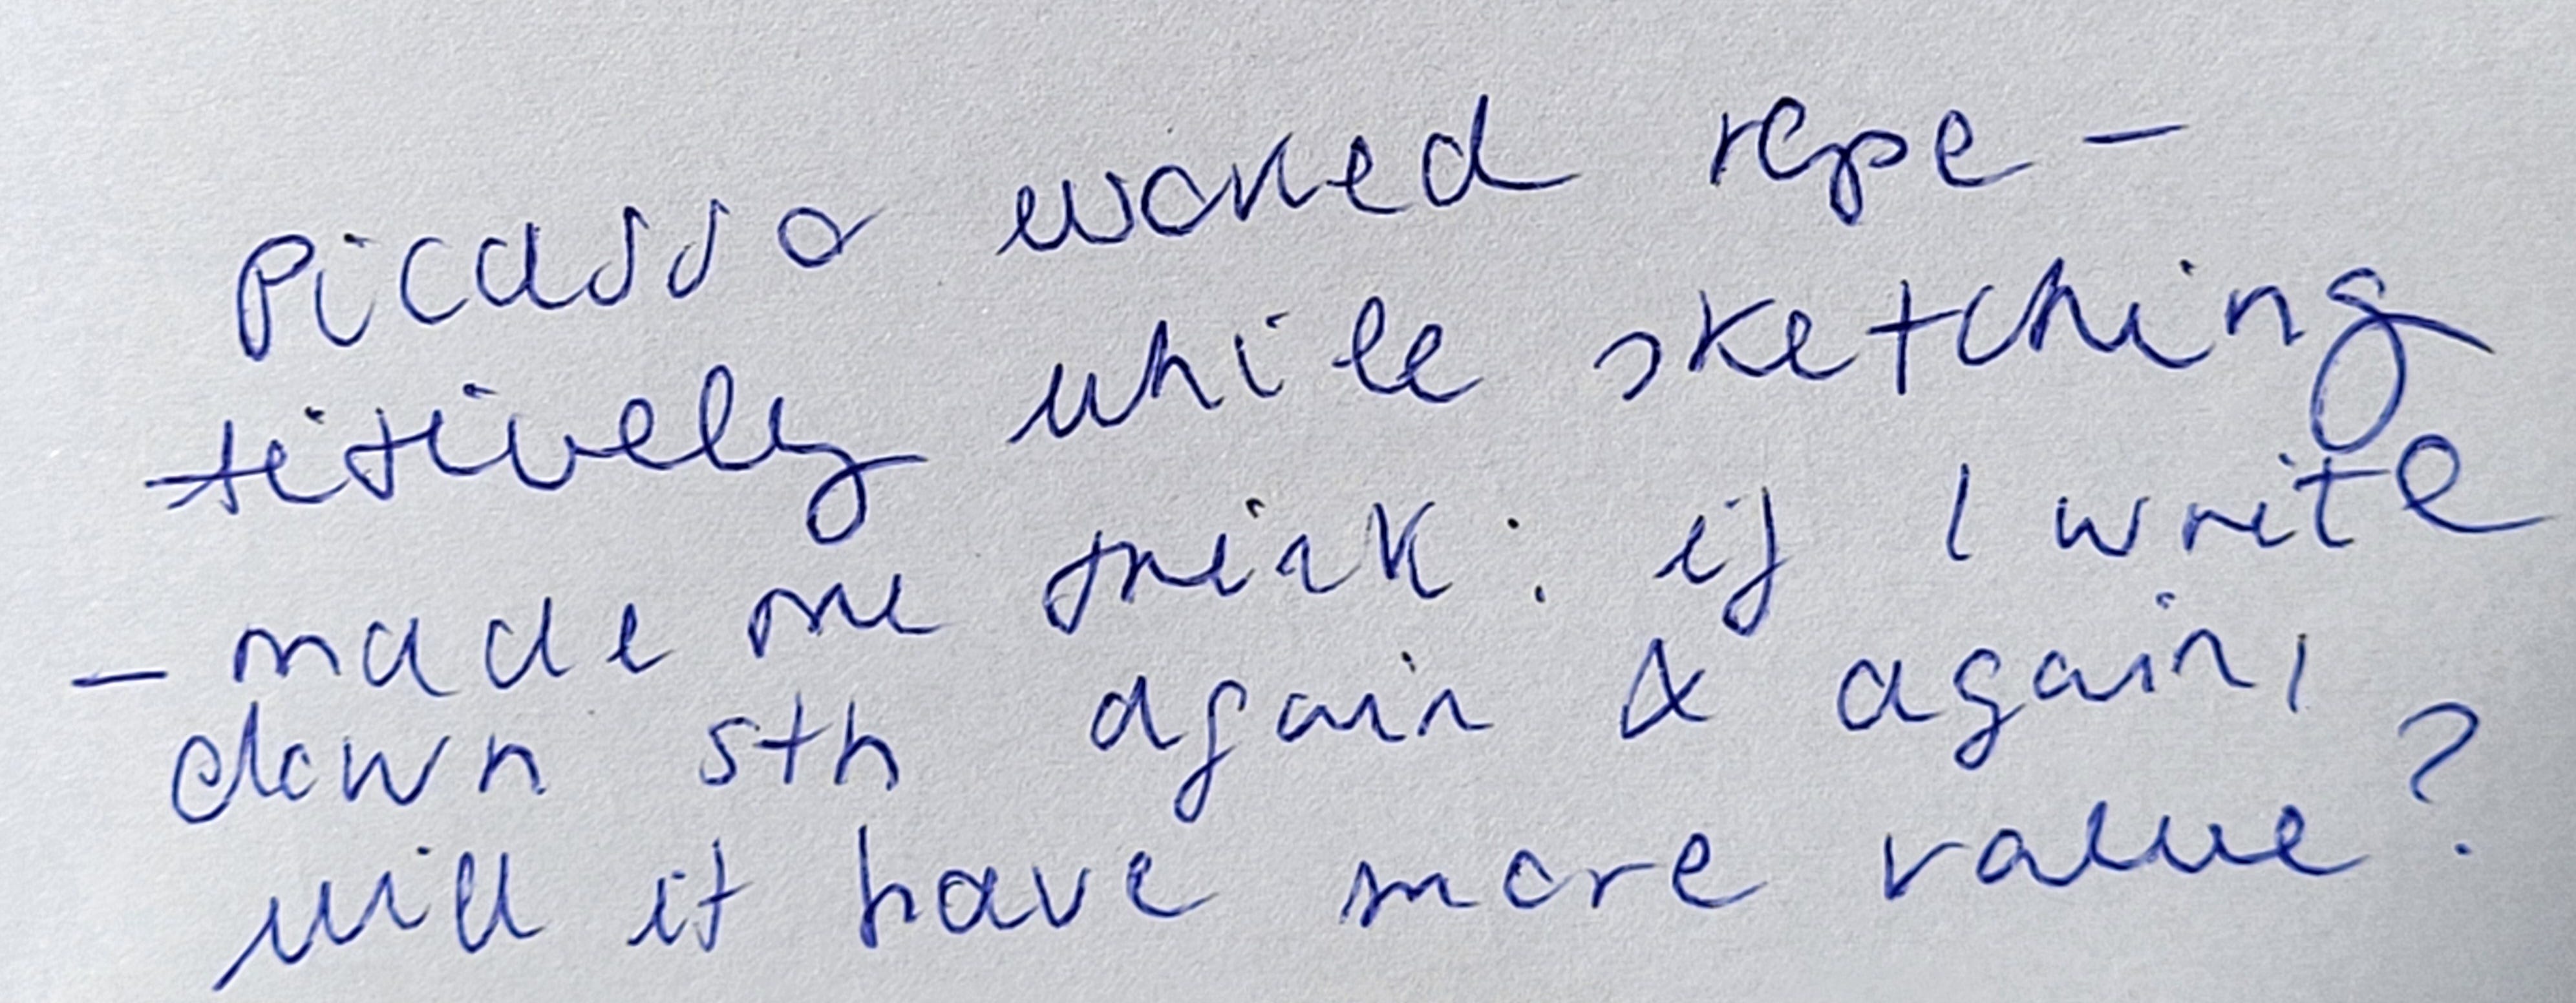 Picasso worked repe-
titively while sketching
- made me think: if I write
down sth again & again,
will it have more value?